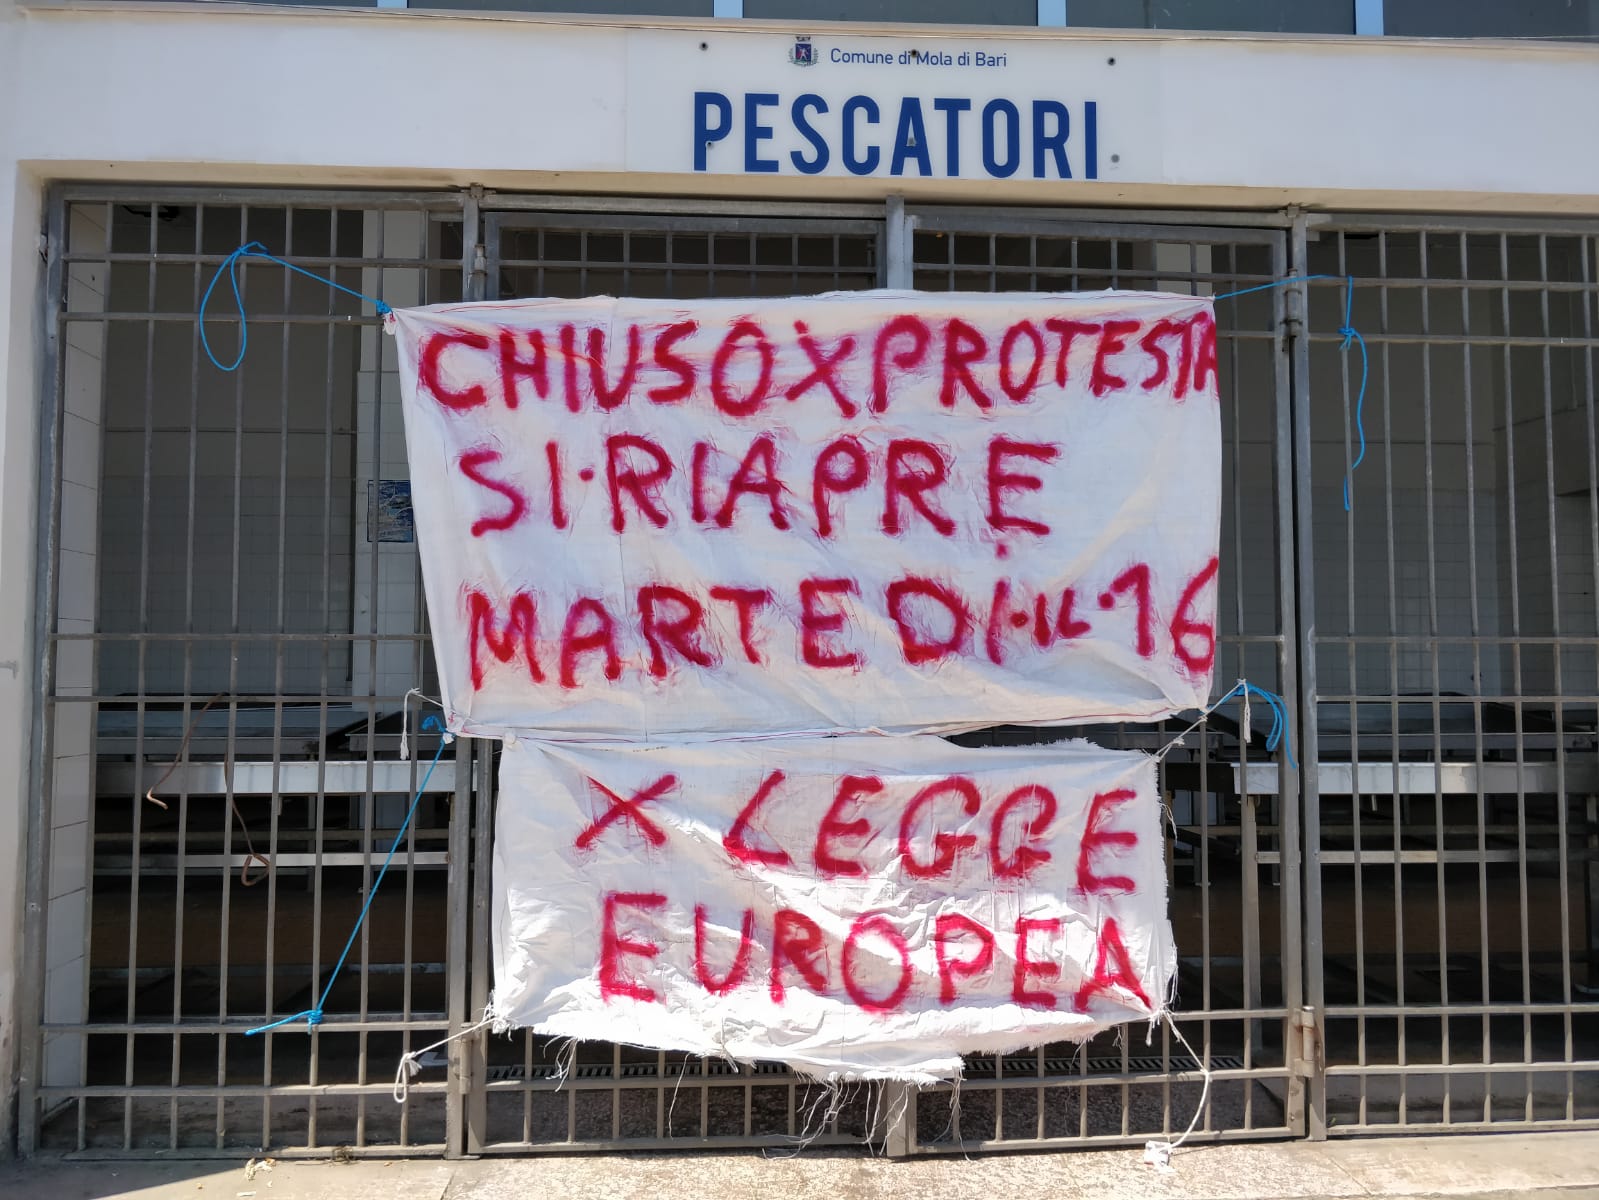 Comune di Mola di Bari
PESCATORI
CHIUSO X PROTESTA
SI·RIAPRE
MARTEDI·IL·16
X LEGGE
EUROPEA